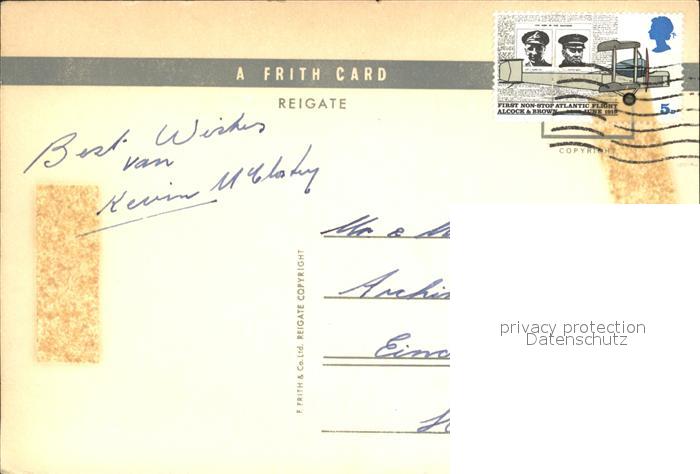 A FRITH CARD
REIGATE
FIRST NON-STOP ATLANTIC FLIGHT
ALCOCK & BROWN JUNE 1919
5D
COPYRIGHT
Best Wishes
van
Kevin McCloskey
F. FRITH & Co. Ltd. REIGATE COPYRIGHT
Mr &
privacy protection
Datenschutz